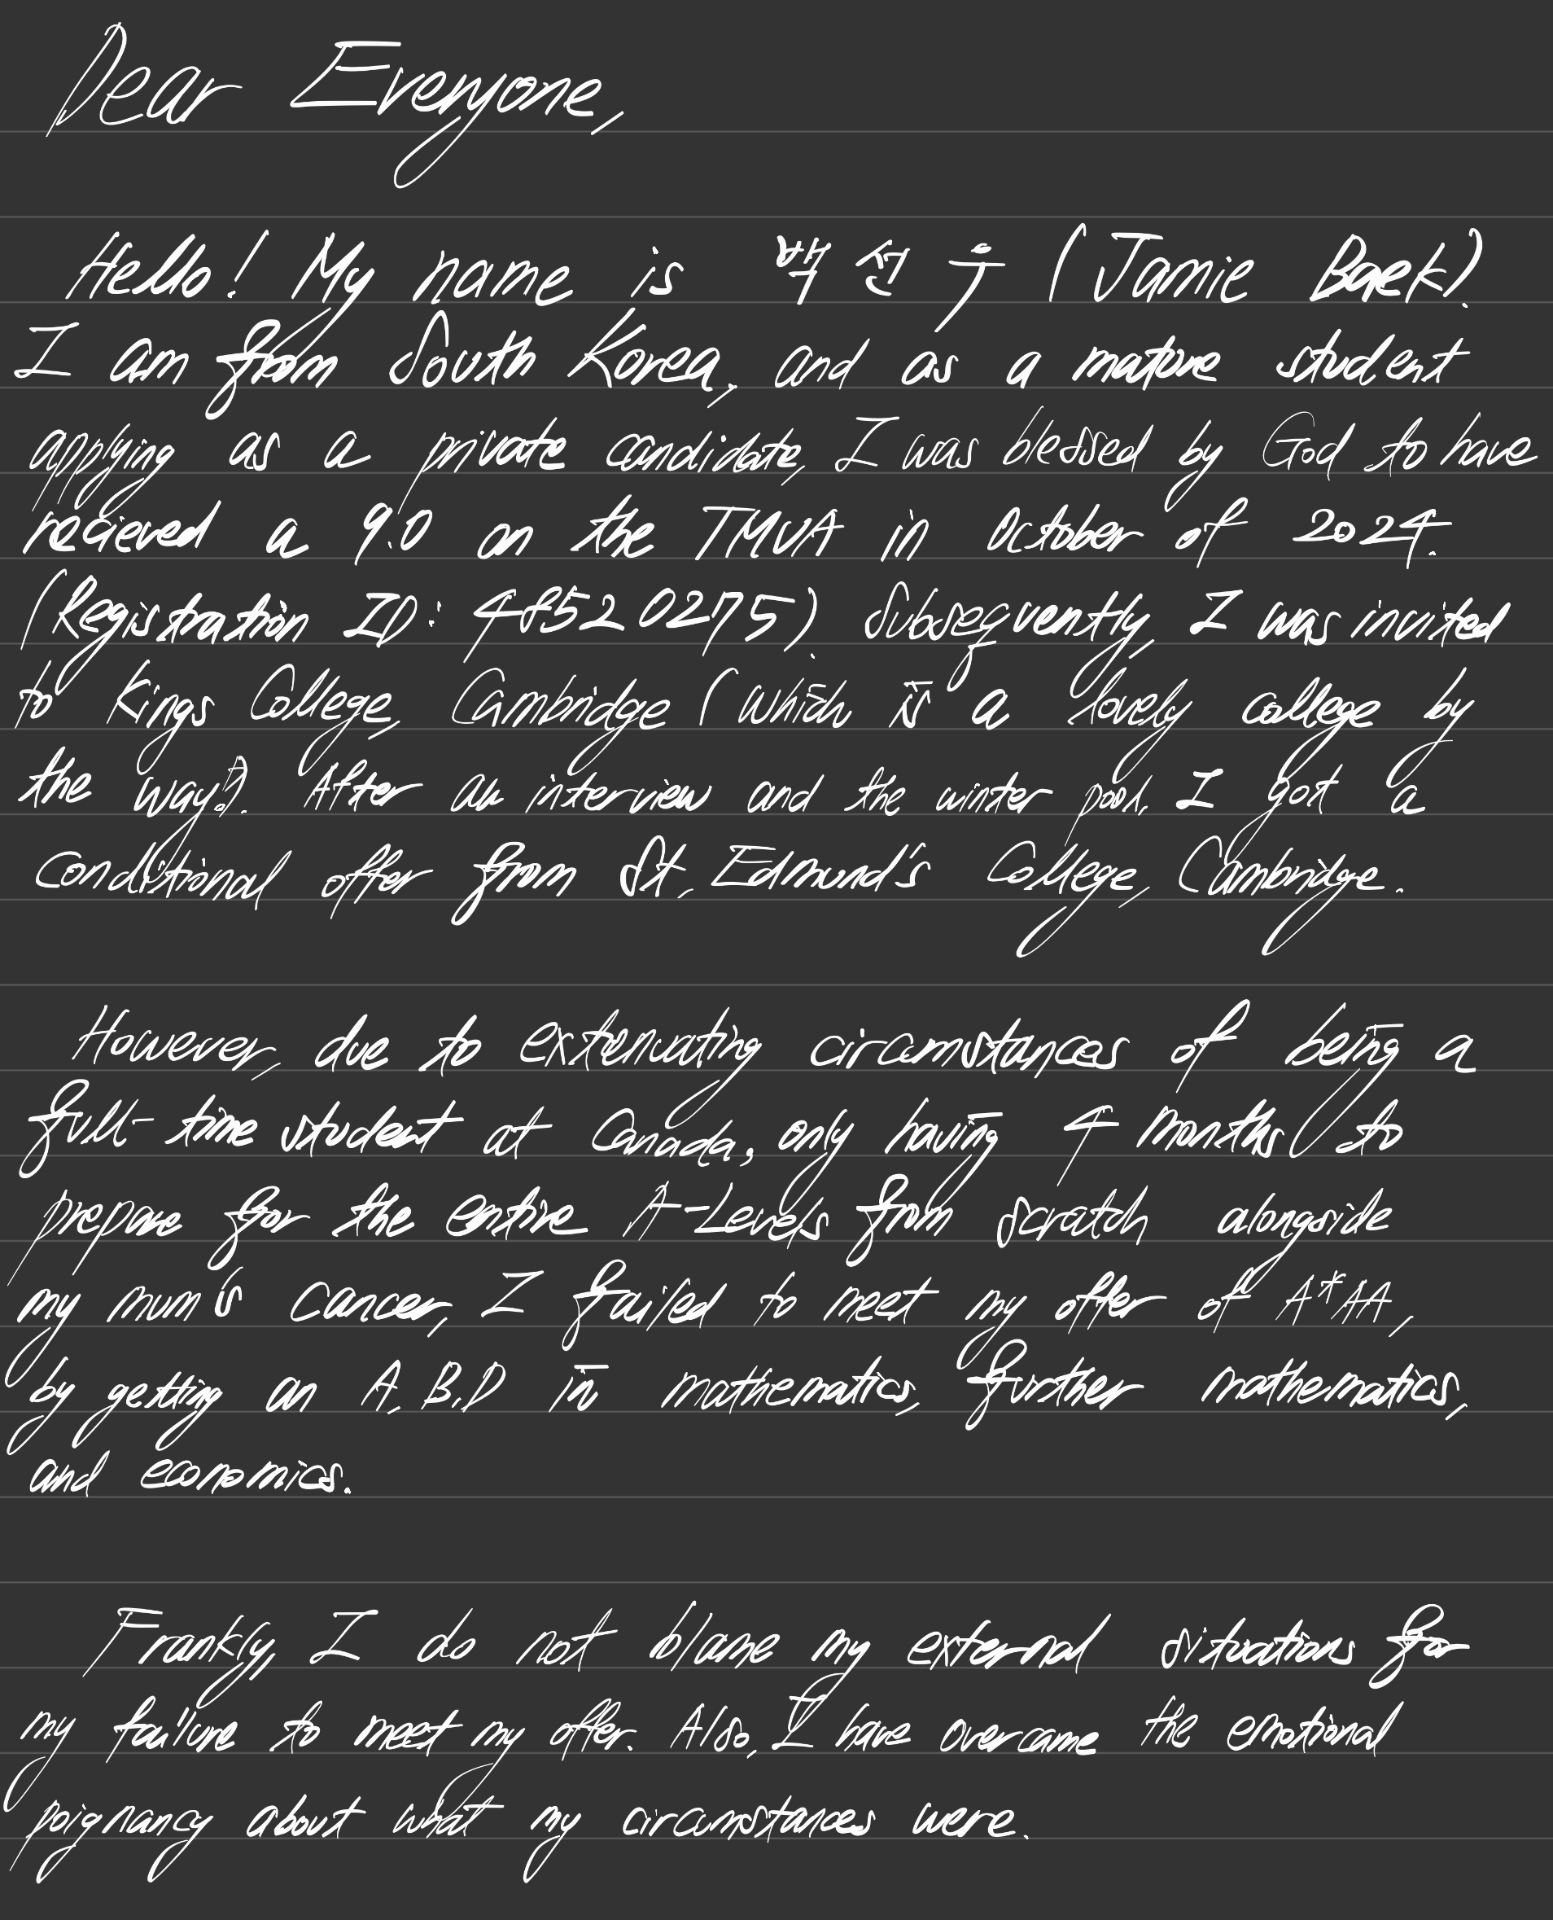 Dear Everyone,
Hello! My name is 백선우 (Jamie Baek).
I am from South Korea, and as a mature student
applying as a private candidate, I was blessed by God to have
recieved a 9.0 on the TMUA in October of 2024.
(Registration ID: 48520275). Subsequently, I was invited
to Kings College, Cambridge (which is a lovely college by
the way!). After an interview and the winter pool, I got a
conditional offer from St. Edmund's College, Cambridge.
However, due to extenuating circumstances of being a
full-time student at Canada, only having 4 months to
prepare for the entire A-Levels from scratch alongside
my mum's cancer, I failed to meet my offer of A*AA,
by getting an A,B,D in mathematics, further mathematics,
and economics.
Frankly, I do not blame my external situations for
my failure to meet my offer. Also, I have overcame the emotional
poignancy about what my circumstances were.